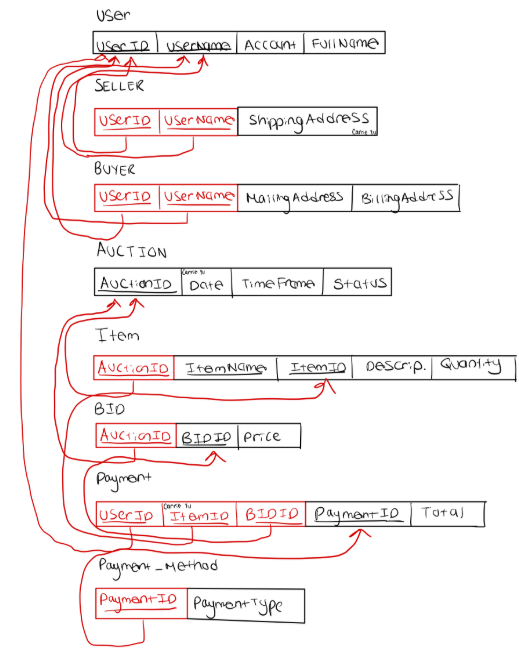 User
UserID UserName Account FullName
SELLER
UserID UserName ShippingAddress
BUYER
UserID UserName MailingAddress BillingAddress
AUCTION
AuctionID Date TimeFrame Status
Item
AuctionID ItemName ItemID Descrip. Quantity
BID
AuctionID BIDID Price
Payment
UserID ItemID BIDID PaymentID Total
Payment_Method
PaymentID PaymentType